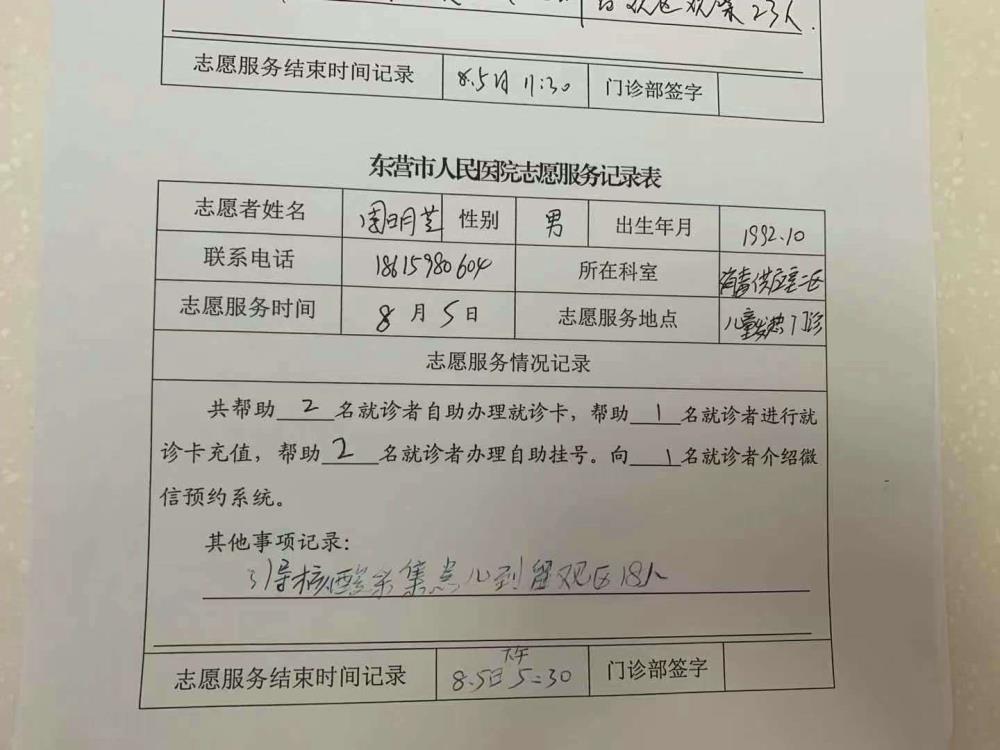 观察23人.
志愿服务结束时间记录 8.5日 11:30 门诊部签字
东营市人民医院志愿服务记录表
志愿者姓名 周明芝 性别 男 出生年月 1992.10
联系电话 18615980604 所在科室 消毒供应室二区
志愿服务时间 8月5日 志愿服务地点 儿童发热门诊
志愿服务情况记录
共帮助2名就诊者自助办理就诊卡，帮助1名就诊者进行就
诊卡充值，帮助2名就诊者办理自助挂号。向1名就诊者介绍微
信预约系统。
其他事项记录：
引导核酸采集患儿到留观区18人
志愿服务结束时间记录 8.5日下午5:30 门诊部签字